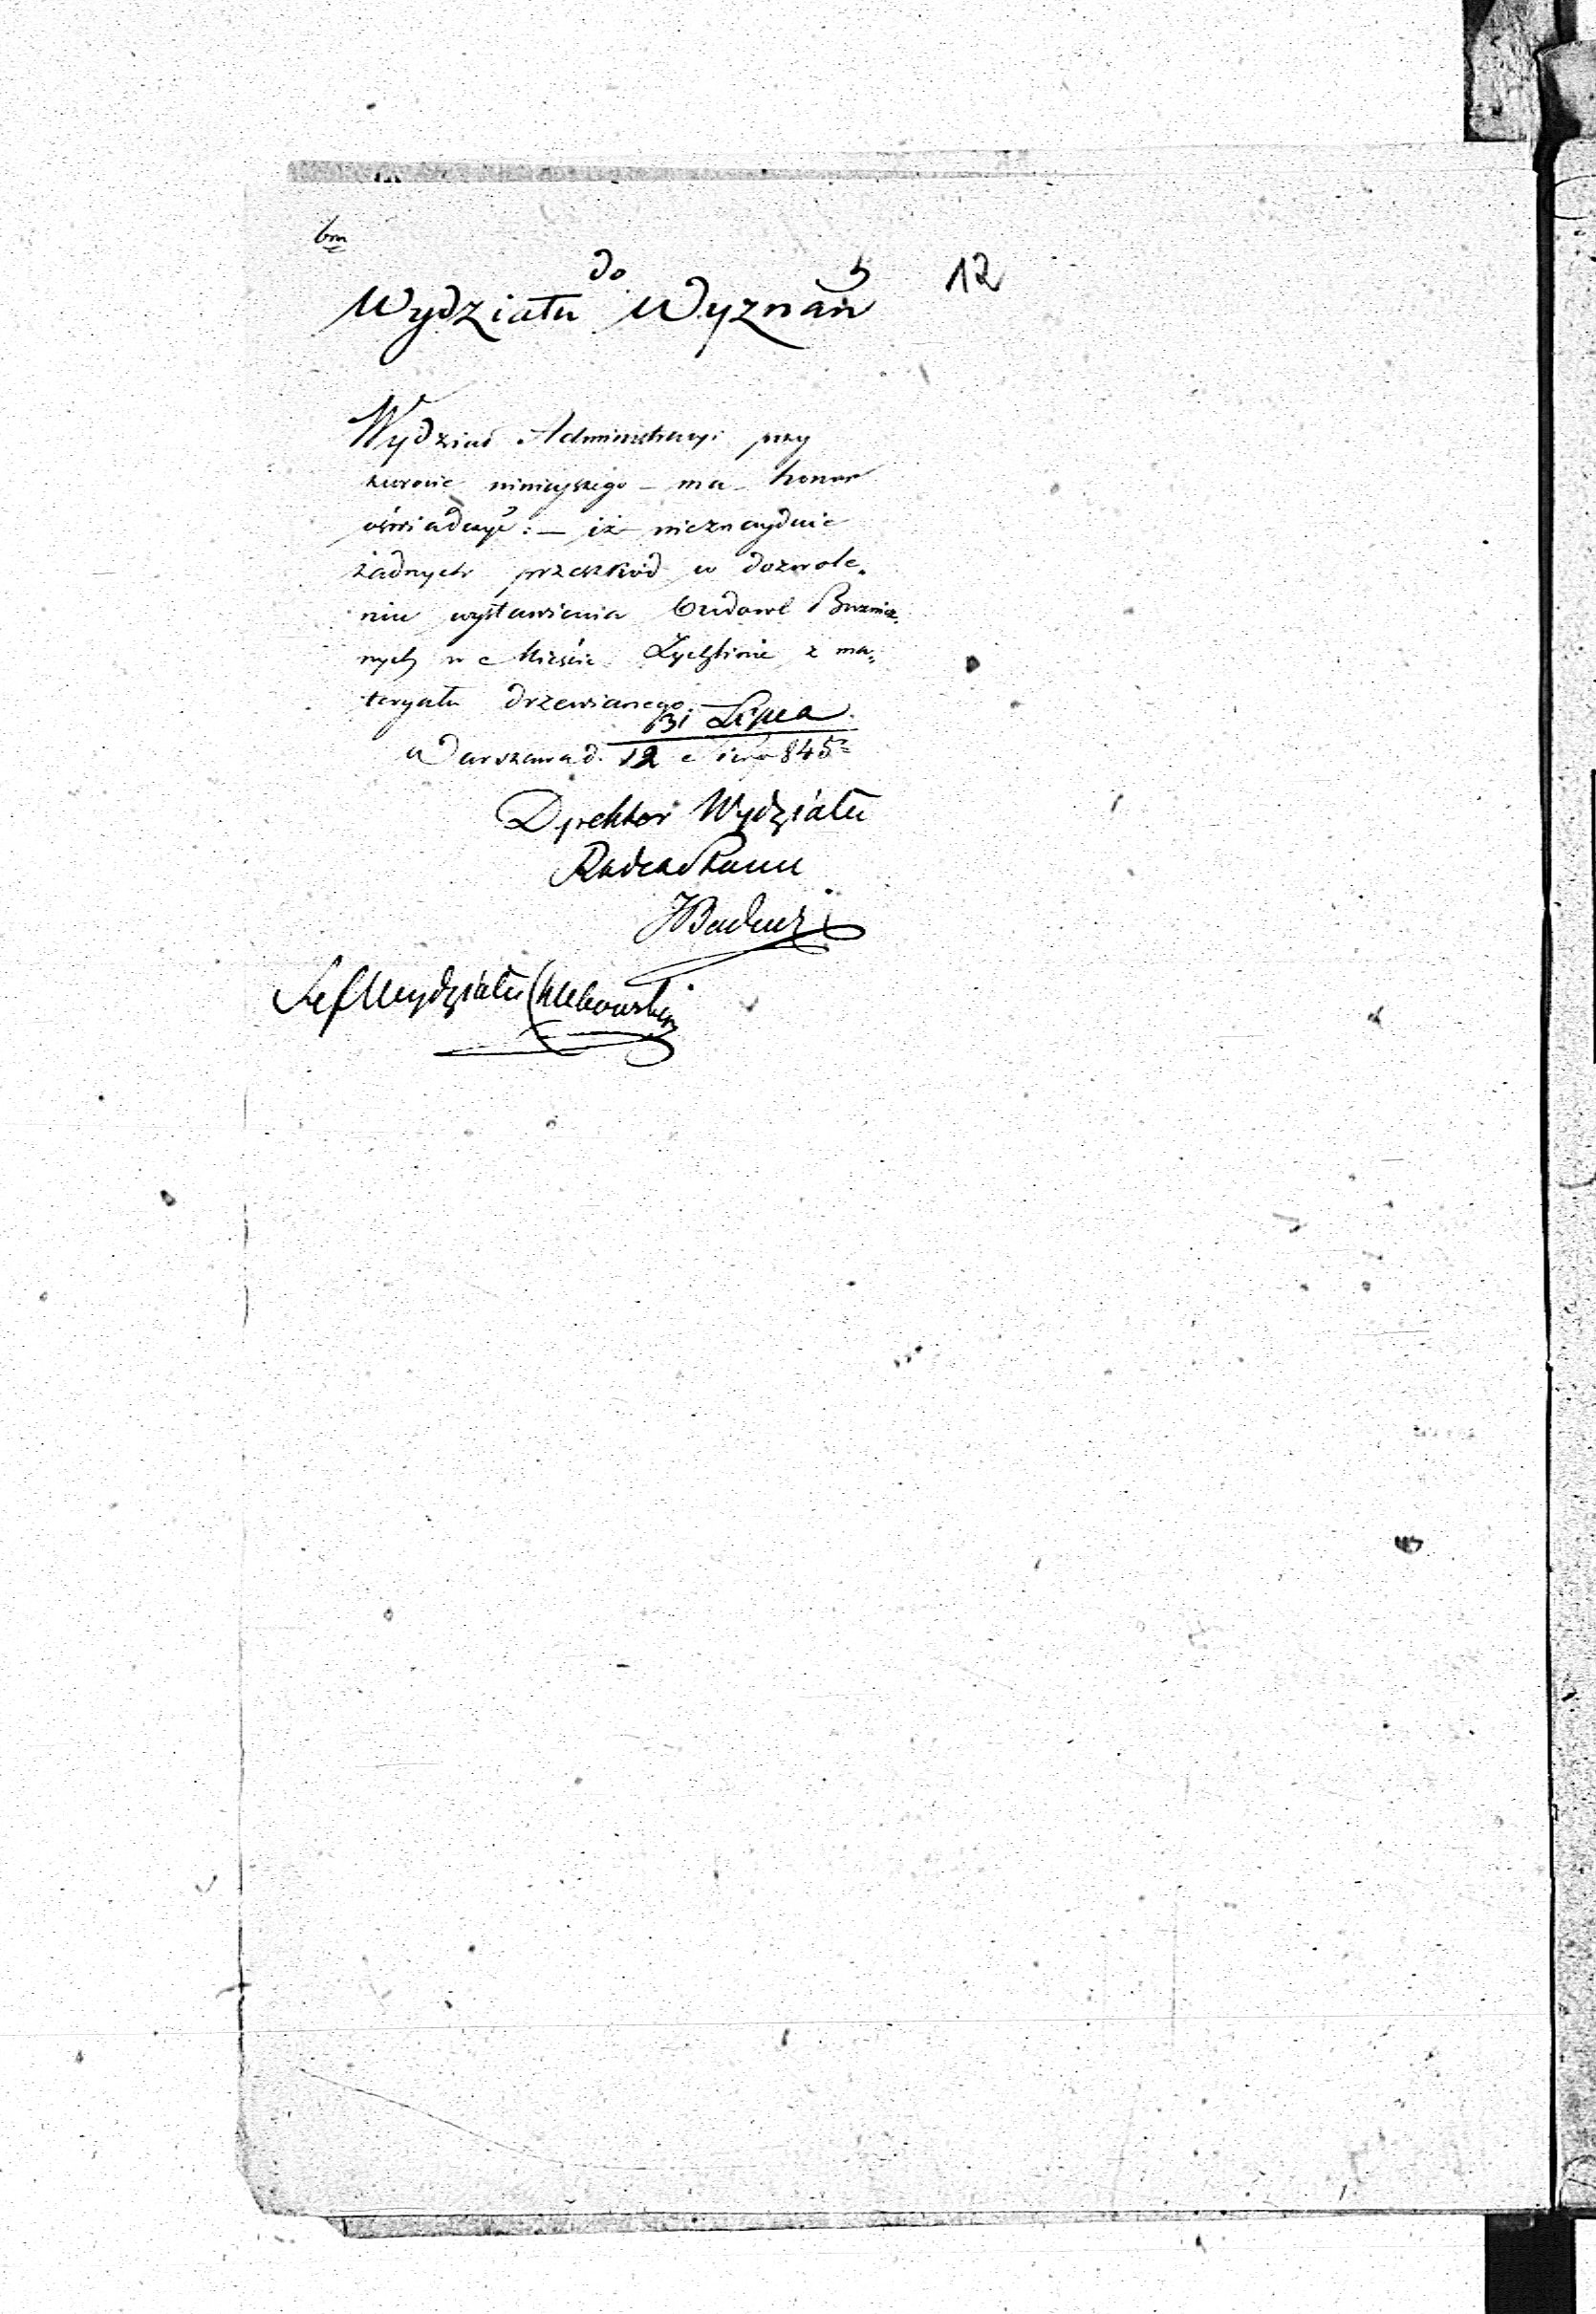 bm
do
12
Wydziału Wyznań
Wydział Administracyi przy
zwrocie ninieyszego – ma honor
oświadczyć: – iż nieznayduie
żadnych przeszkód w dozwole„
niu wystawienia budowl Bużnicz„
nych w Mieście Żychlinie z ma„
teryału drzewianego. –
31 Lipca
Warszawa d. 12 Siern 845 r
Dyrektor Wydziału
Radca Stanu
Szef Wydziału